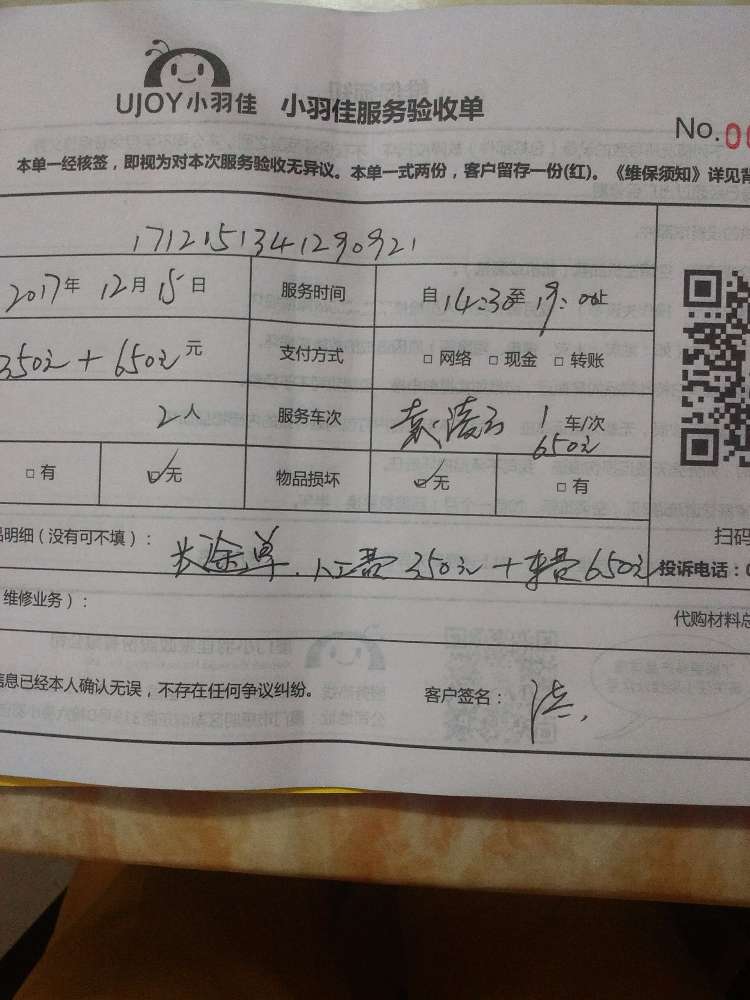 UJOY小羽佳 小羽佳服务验收单
No.
本单一经核签，即视为对本次服务验收无异议。本单一式两份，客户留存一份(红)。《维保须知》详见背
1712151341290921
2017年 12月 15日 服务时间 自 14:30至 19:00止
350元 + 650元 元 支付方式 □ 网络 □ 现金 □ 转账
2人 服务车次 1 车/次
650元
□ 有 ☑ 无 物品损坏 ☑ 无 □ 有
品明细（没有可不填）： 长途单. 人工费350元 + 车费650元
扫码
投诉电话：0
维修业务）： 代购材料总
信息已经本人确认无误，不存在任何争议纠纷。 客户签名：